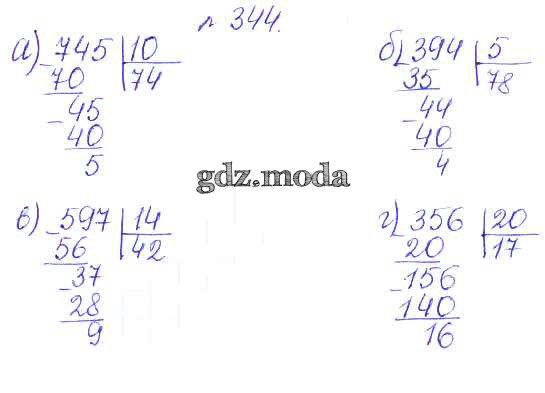 № 344.
а) 745 | 10
70 | 74
- 45
40
5
б) 394 | 5
35 | 78
- 44
40
4
gdz.moda
в) 597 | 14
56 | 42
- 37
28
9
г) 356 | 20
20 | 17
- 156
140
16